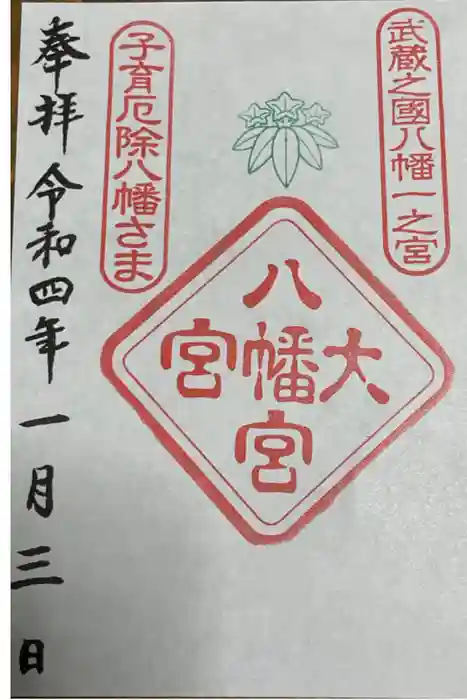 武蔵之國八幡一之宮
大宮
八幡宮
子育厄除八幡さま
奉拝 令和四年一月三日